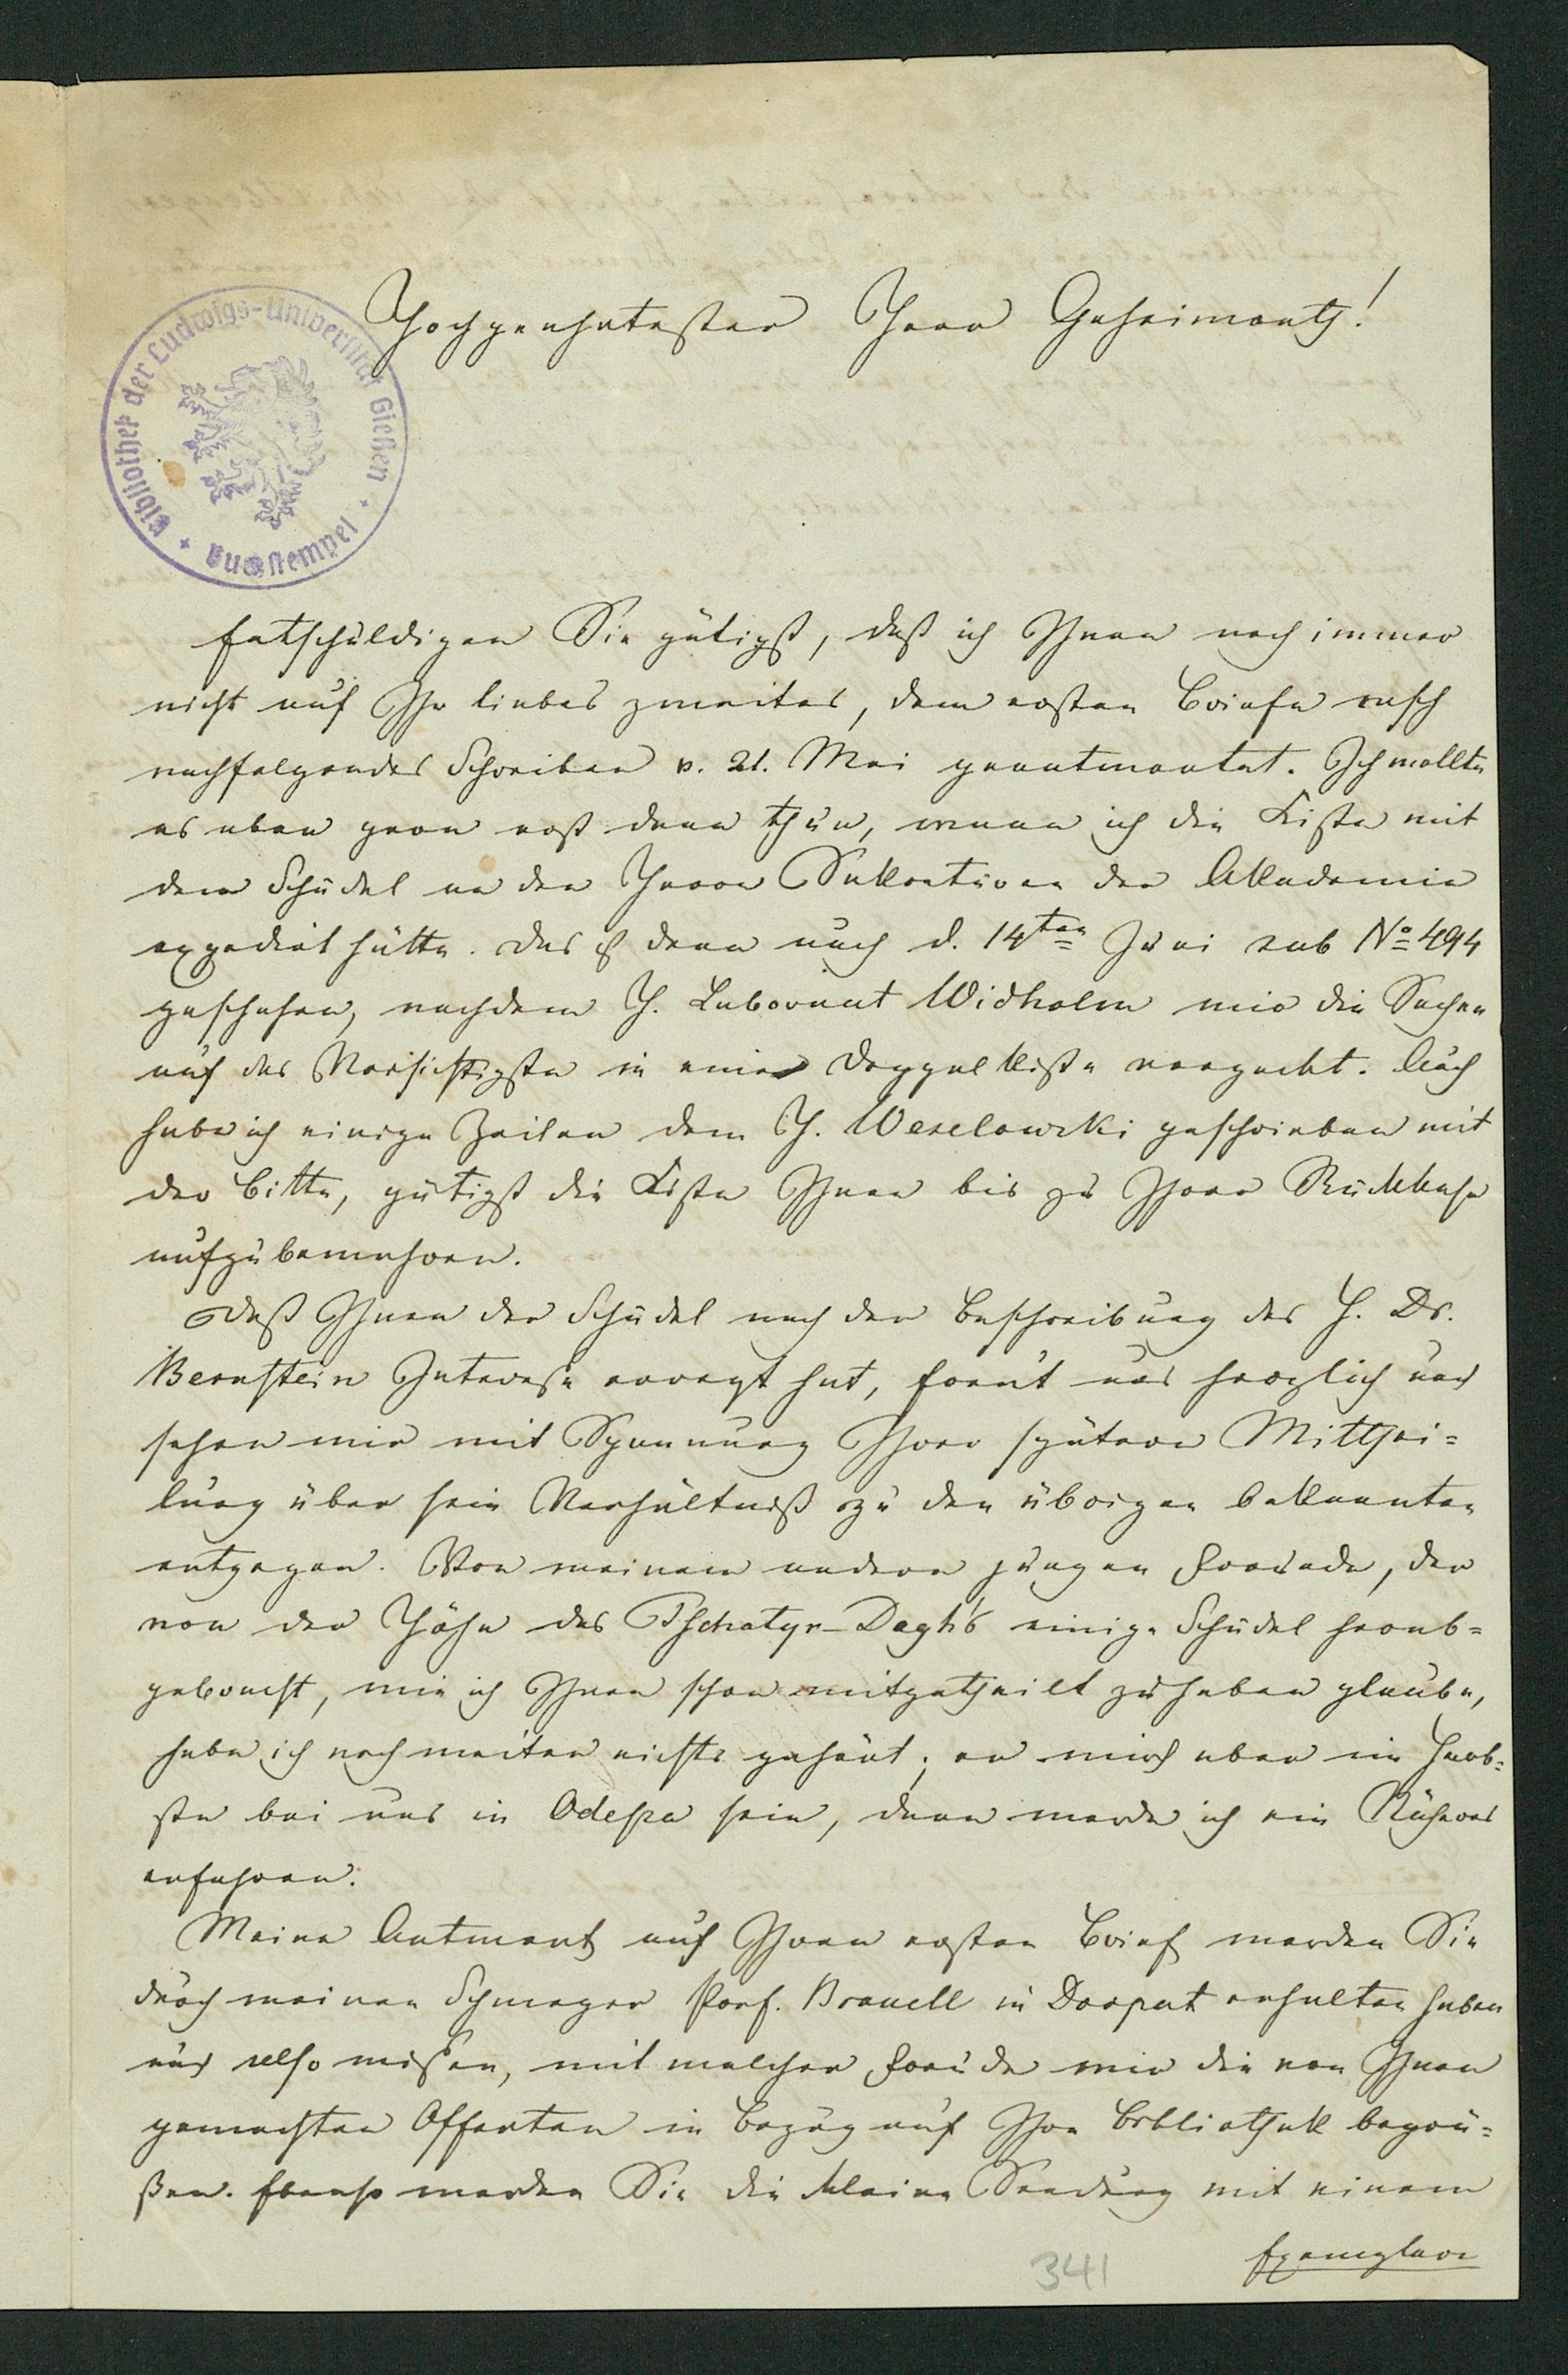 Hochgeehrtester Herr Geheimrath!
Bibliothek der Ludwigs-Universität Gießen
Buchstempel
Entschuldigen Sie gütigst, daß ich Ihnen noch immer
nicht auf Ihr liebes zweites, dem ersten Briefe rasch
nachfolgendes Schreiben v. 21. Mai geantwortet. Ich wollte
es aber gern erst dann thun, wenn ich die Kiste mit
dem Schädel an den Herrn Sekretären der Akademie
expedirt hätte. Das ist denn auch d. 14ten Juni sub No 494
geschehen, nachdem H. Laborant Widholm mir die Sachen
auf das Vorsichtigste in einer Doppelkiste verpackt. Auch
habe ich einige Zeilen dem H. Weselowski geschrieben mit
der Bitte, gütigst die Kiste Ihnen bis zu Ihrer Rückkehr
aufzubewahren.
Daß Ihnen der Schädel nach der Beschreibung des H. Dr.
Bernstein Interesse erregt hat, freut uns herzlich und
sehen wir mit Spannung Ihrer spätern Mitthei=
lung über sein Verhältniß zu den übrigen bekannten
entgegen. Von meinem andern jungen Freunde, der
von der Höhe des Tschatyr-Dagh's einige Schädel herab=
gebracht, wie ich Ihnen schon mitgetheilt zu haben glaube,
habe ich noch weiter nichts gehört; er wird aber im Herb=
ste bei uns in Odessa sein, dann werde ich ein Näheres
erfahren.
Meine Antwort auf Ihren ersten Brief werden Sie
durch meinen Schwager Prof. Brauell in Dorpat erhalten haben
und also wissen, mit welcher Freude wir die von Ihnen
gemachten Offerten in Bezug auf Ihre Bibliothek begrü=
ßen. Ebenso werden Sie die kleine Sendung mit einem
Exemplare
341